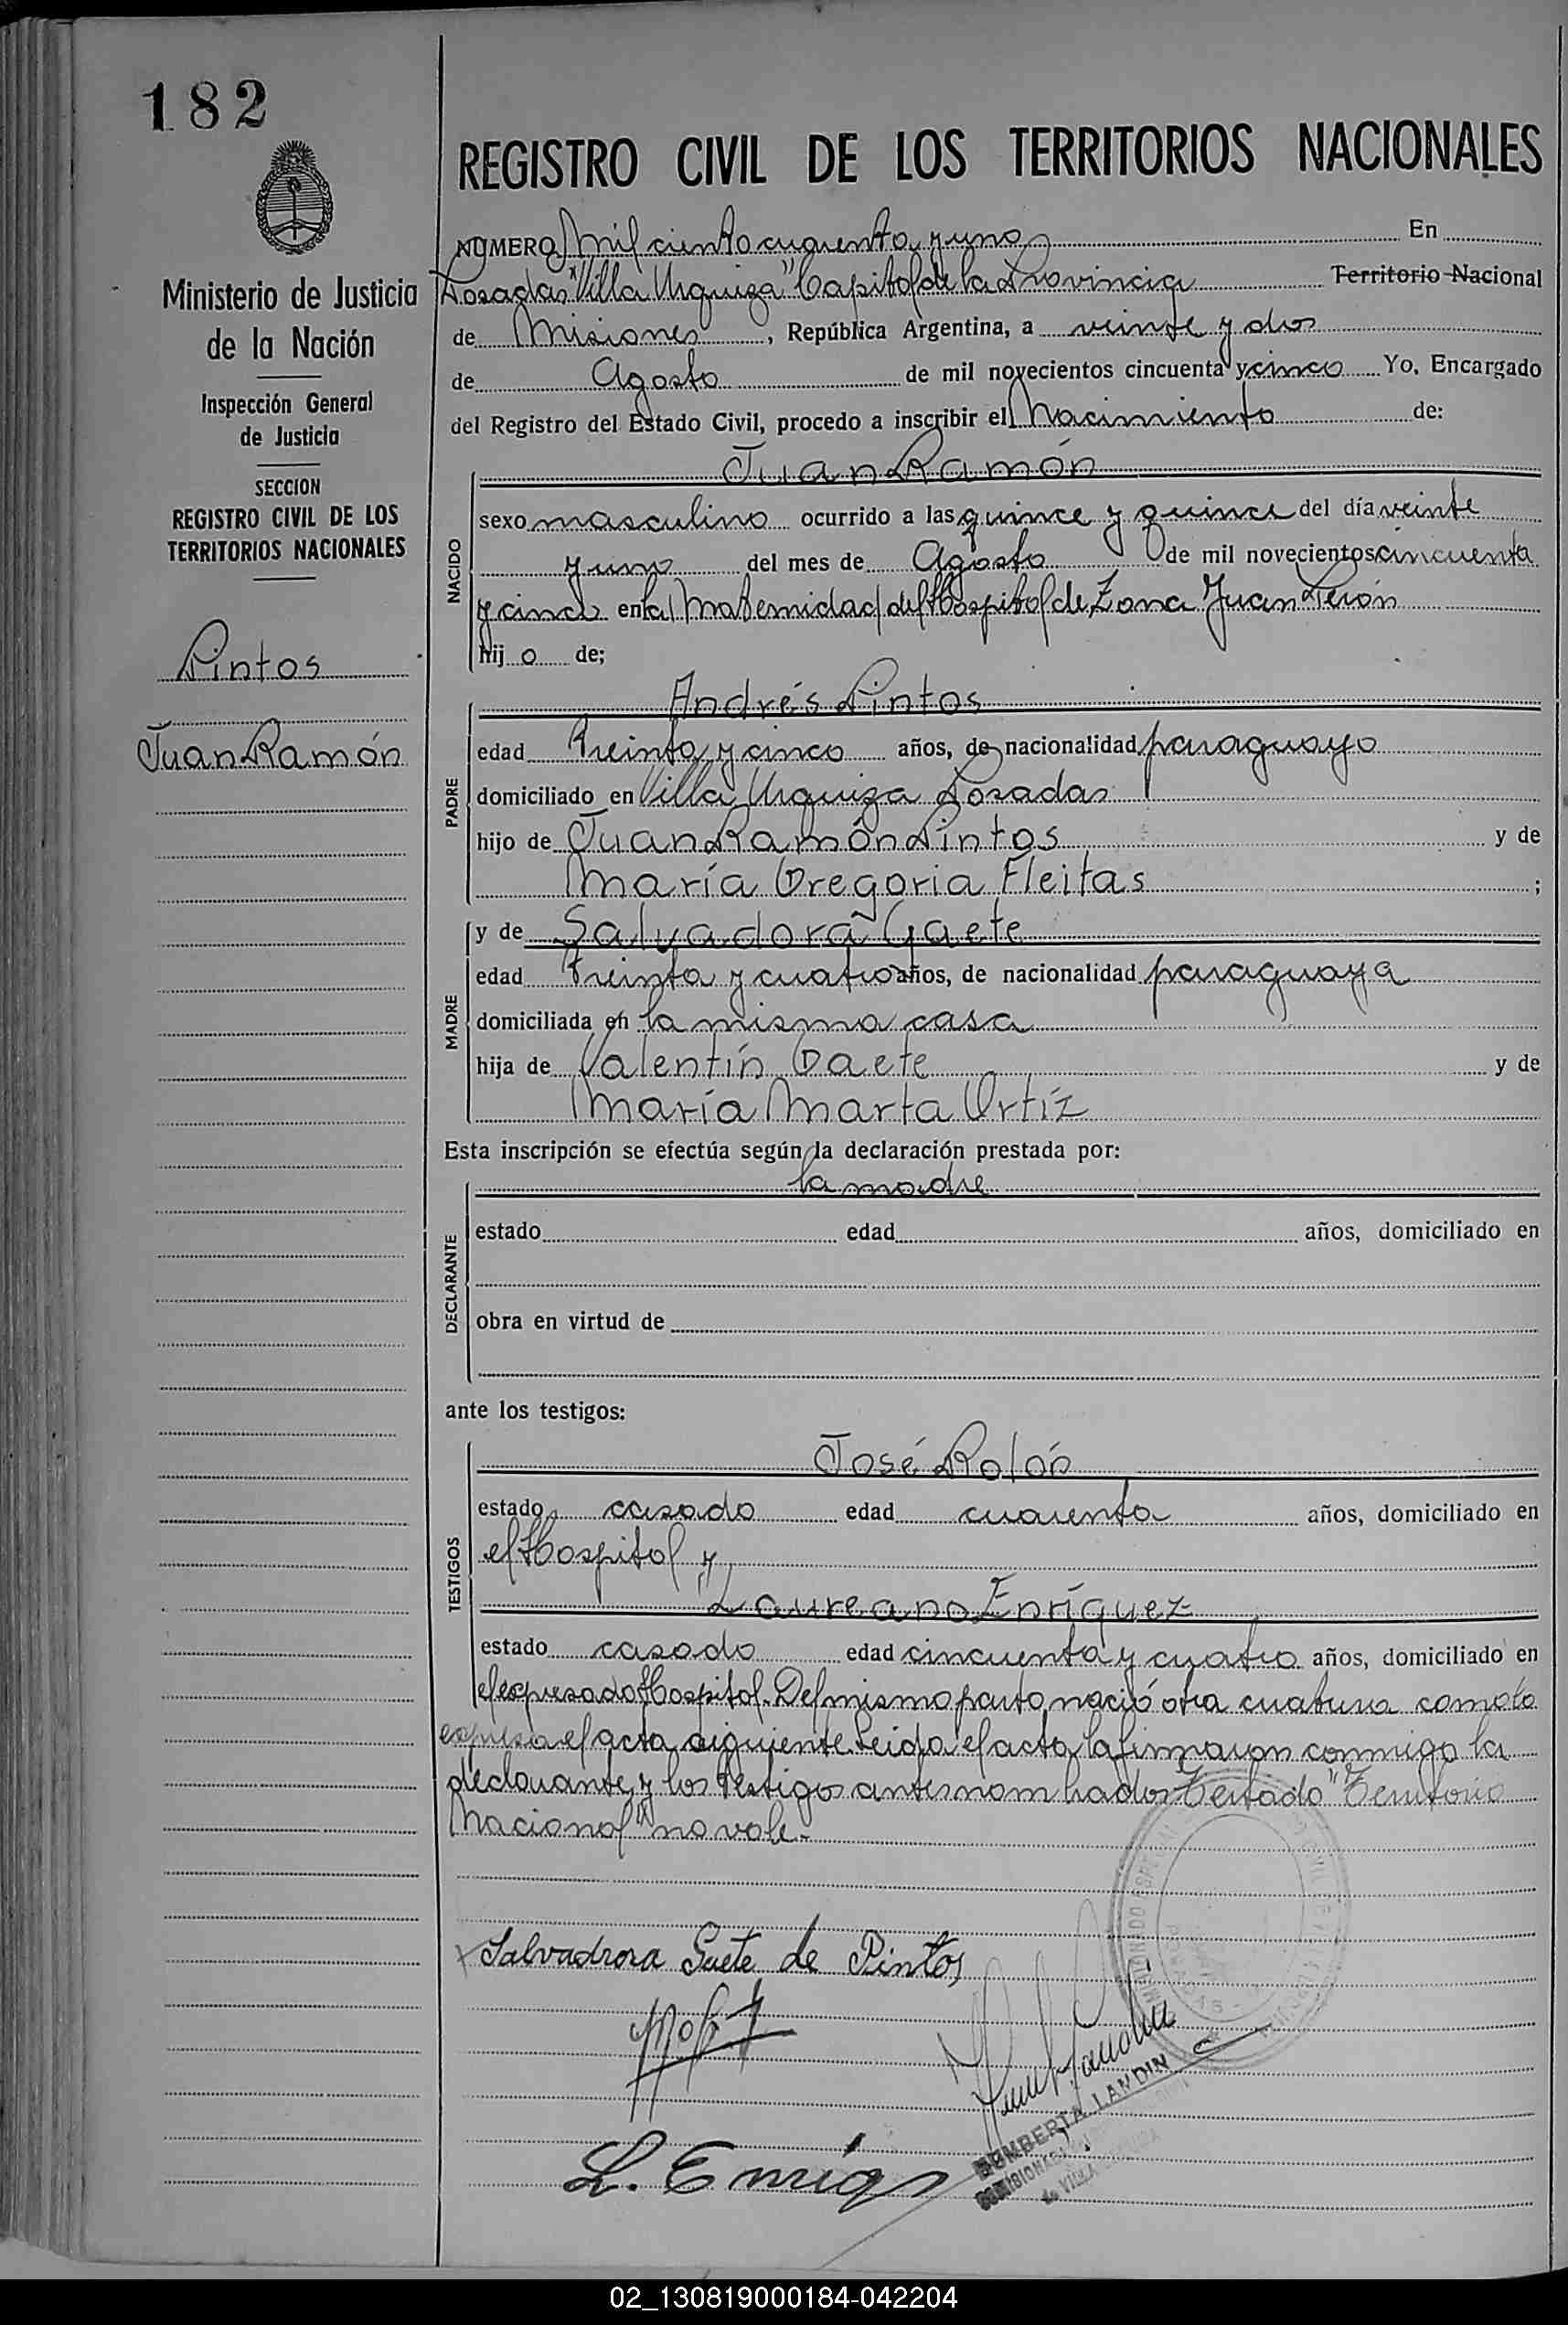 182
REGISTRO CIVIL DE LOS TERRITORIOS NACIONALES
Ministerio de Justicia
de la Nación
Inspección General
de Justicia
SECCION
REGISTRO CIVIL DE LOS
TERRITORIOS NACIONALES
Pintos
Juan Ramón
NUMERO Mil ciento cuarenta y uno En
Posadas "Villa Urquiza" Capital de la Provincia Territorio Nacional
de Misiones, República Argentina, a veinte y dos
de Agosto de mil novecientos cincuenta y cinco Yo, Encargado
del Registro del Estado Civil, procedo a inscribir el Nacimiento de:
Juan Ramón
NACIDO
sexo masculino ocurrido a las quince y quince del día veinte
y uno del mes de Agosto de mil novecientos cincuenta
y cinco en la Maternidad del Hospital de Zona Juan Perón
hijo de;
Andrés Pintos
PADRE
edad treinta y cinco años, de nacionalidad paraguayo
domiciliado en Villa Urquiza Posadas
hijo de Juan Ramón Pintos y de
María Gregoria Fleitas ;
MADRE
y de Salvadora Gaete
edad treinta y cuatro años, de nacionalidad paraguaya
domiciliada en la misma casa
hija de Valentín Gaete y de
María Marta Ortíz
Esta inscripción se efectúa según la declaración prestada por:
la madre
DECLARANTE
estado edad años, domiciliado en
obra en virtud de
ante los testigos:
José Rolón
TESTIGOS
estado casado edad cuarenta años, domiciliado en
el Hospital y
Laureano Enríquez
estado casado edad cincuenta y cuatro años, domiciliado en
el expresado Hospital. Del mismo parto nació otra criatura como lo
expresa el acta siguiente. Leida el acta la firmaron conmigo la
declarante y los testigos antes nombrados. Testado "Territorio
Nacional" no vale.
Salvadrora Gaete de Pintos
L. Enriqz
HUMBERTA LANDIN
02_130819000184-042204